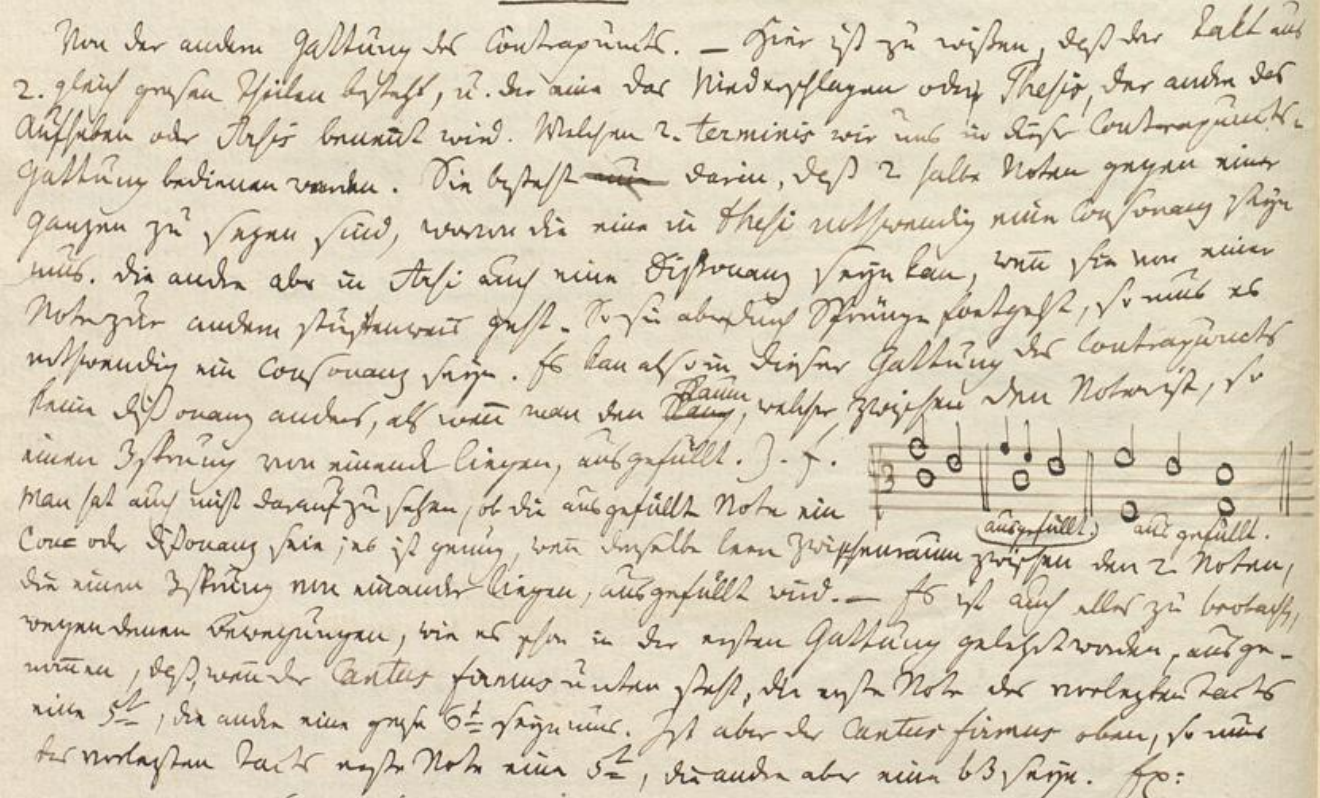 Von der andern Gattung des Contrapuncts. — Hier ist zu wißen, daß der Takt aus
2. gleich grosen Theilen besteht, u. der eine das Niederschlagen oder Thesis, der andre das
Aufheben oder Arsis benent wird. Welchen 2. terminis wir uns in dieser Contrapuncts-
Gattung bedienen werden. Sie besteht darin, daß 2 halbe Noten gegen einer
ganzen zu sezen sind, wovon die eine in thesi nothwendig eine Consonanz seyn
mus. die andre aber in Arsi auch eine Dißonanz seyn kan, wen sie von einer
Note zur andern stuffenweis geht. So sie aber durch Sprünge fortgeht, so mus es
nothwendig ein Consonanz seyn. Es kan also in dieser Gattung des Contrapuncts
keine Dißonanz anders, als wen man den Raum, welcher zwischen den Noten ist, so
einen 3sprung von einander liegen, ausgefüllt. Z. f.
Man hat auch nicht darauf zu sehen, ob die ausgefüllt Note ein
ausgefüllt. ausgefüllt.
Con= oder Dißonanz seie; es ist genug, wen derselbe leere Zwischenraum zwischen den 2. Noten,
die einen 3sprung von einander liegen, ausgefüllt wird. — Es ist auch alles zu beobacht,
wegen denen Bewegungen, wie es schon in der ersten Gattung gelehrt worden, ausge-
nomen, daß, wen der Cantus firmus unten steht, die erste Note des vorlezten Tacts
eine 5t, die andre eine große 6t seyn mus. Ist aber der Cantus firmus oben, so mus
des vorlezten Tacts erste Note eine 5t, die andre aber eine b3 seyn. Ex: